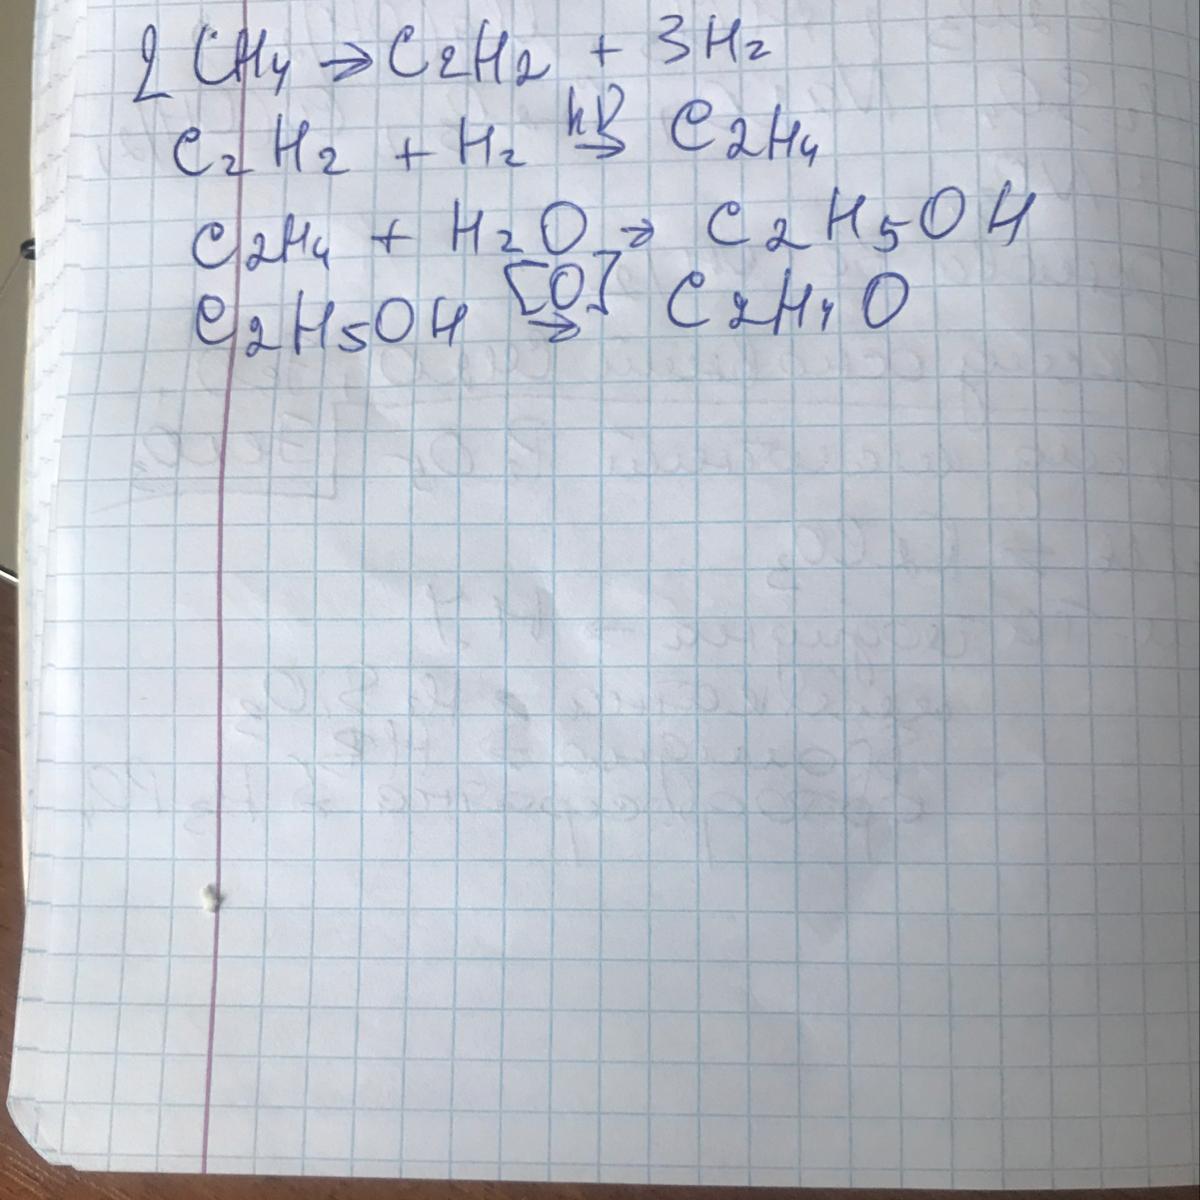 2 CH4 → C2H2 + 3H2
C2H2 + H2 hν → C2H4
C2H4 + H2O → C2H5OH
C2H5OH [O] → C2H4O